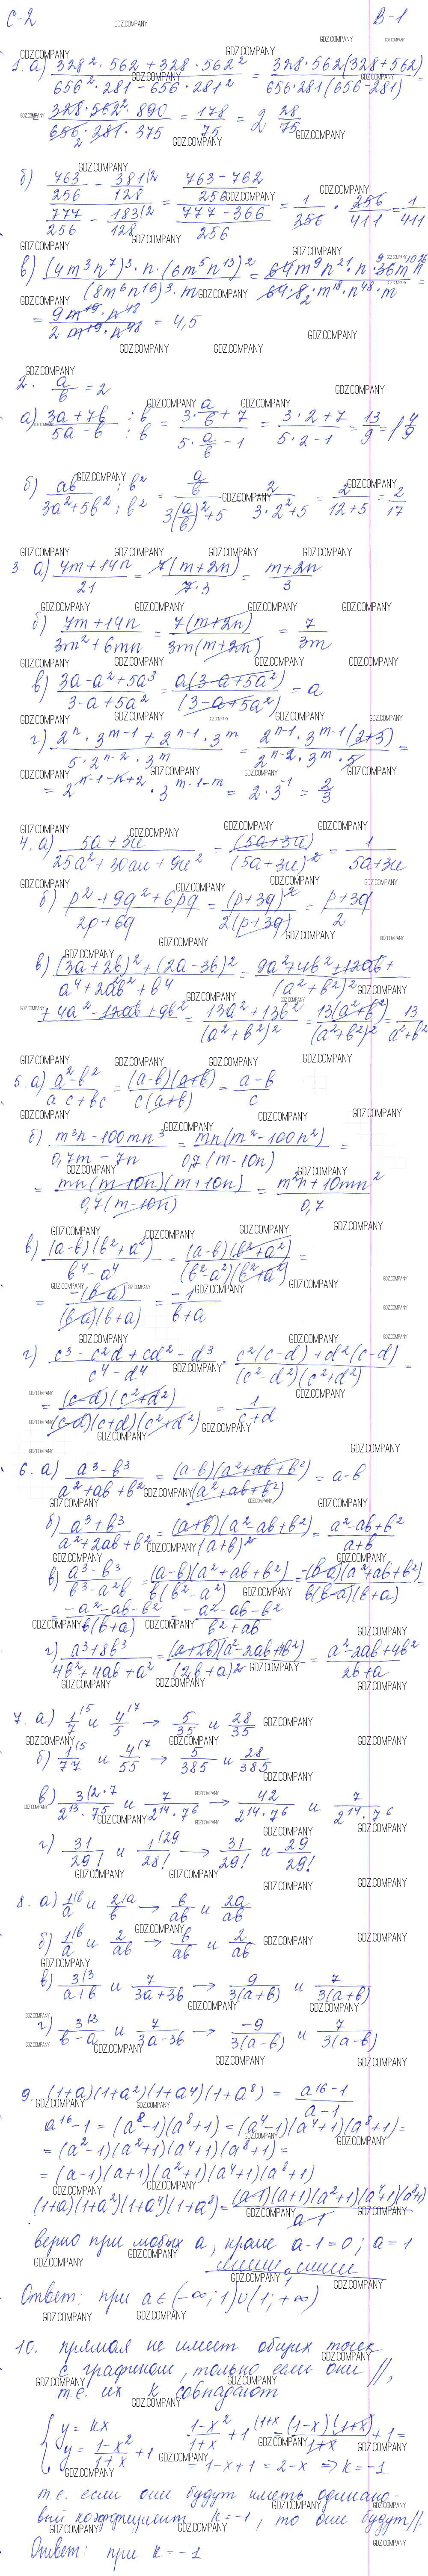 С-2 В-1
1. а) (328² · 562 + 328 · 562²)/(656² · 281 - 656 · 281²) = (328 · 562(328 + 562))/(656 · 281(656 - 281)) =
= (328 · 562 · 890)/(656 · 281 · 375) = 178/75 = 2 28/75
б) (763/256 - 381/128)/(777/256 - 183/128) = ((763 - 762)/256)/((777 - 366)/256) = 1/256 · 256/411 = 1/411
в) ((4m³n⁷)³ · n · (6m⁵n¹³)²)/((8m⁶n¹⁶)³ · m) = (64m⁹n²¹ · n · 36m¹⁰n²⁶)/(64 · 8 · m¹⁸ · n⁴⁸ · m) =
= (9m¹⁹ · n⁴⁸)/(2m¹⁹ · n⁴⁸) = 4,5
2. a/b = 2
а) (3a + 7b)/(5a - b) :b/:b = (3 · a/b + 7)/(5 · a/b - 1) = (3 · 2 + 7)/(5 · 2 - 1) = 13/9 = 1 4/9
б) ab/(3a² + 5b²) :b²/:b² = (a/b)/(3(a/b)² + 5) = 2/(3 · 2² + 5) = 2/(12 + 5) = 2/17
3. а) (7m + 14n)/21 = 7(m + 2n)/(7 · 3) = (m + 2n)/3
б) (7m + 14n)/(3m² + 6mn) = 7(m + 2n)/(3m(m + 2n)) = 7/(3m)
в) (3a - a² + 5a³)/(3 - a + 5a²) = a(3 - a + 5a²)/(3 - a + 5a²) = a
г) (2ⁿ · 3ᵐ⁻¹ + 2ⁿ⁻¹ · 3ᵐ)/(5 · 2ⁿ⁻² · 3ᵐ) = (2ⁿ⁻¹ · 3ᵐ⁻¹(2 + 3))/(2ⁿ⁻² · 3ᵐ · 5) =
= 2ⁿ⁻¹⁻ⁿ⁺² · 3ᵐ⁻¹⁻ᵐ = 2 · 3⁻¹ = 2/3
4. а) (5a + 3u)/(25a² + 30au + 9u²) = (5a + 3u)/(5a + 3u)² = 1/(5a + 3u)
б) (p² + 9q² + 6pq)/(2p + 6q) = (p + 3q)²/(2(p + 3q)) = (p + 3q)/2
в) ((3a + 2b)² + (2a - 3b)²)/(a⁴ + 2a²b² + b⁴) = (9a² + 4b² + 12ab +
+ 4a² - 12ab + 9b²)/(a² + b²)² = (13a² + 13b²)/(a² + b²)² = 13(a² + b²)/(a² + b²)² = 13/(a² + b²)
5. а) (a² - b²)/(ac + bc) = (a - b)(a + b)/(c(a + b)) = (a - b)/c
б) (m³n - 100mn³)/(0,7m - 7n) = mn(m² - 100n²)/(0,7(m - 10n)) =
= mn(m - 10n)(m + 10n)/(0,7(m - 10n)) = (m²n + 10mn²)/0,7
в) (a - b)(b² + a²)/(b⁴ - a⁴) = (a - b)(b² + a²)/((b² - a²)(b² + a²)) =
= -(b - a)/((b - a)(b + a)) = -1/(b + a)
г) (c³ - c²d + cd² - d³)/(c⁴ - d⁴) = (c²(c - d) + d²(c - d))/((c² - d²)(c² + d²)) =
= (c - d)(c² + d²)/((c - d)(c + d)(c² + d²)) = 1/(c + d)
6. а) (a³ - b³)/(a² + ab + b²) = (a - b)(a² + ab + b²)/(a² + ab + b²) = a - b
б) (a³ + b³)/(a² + 2ab + b²) = (a + b)(a² - ab + b²)/(a + b)² = (a² - ab + b²)/(a + b)
в) (a³ - b³)/(b³ - a²b) = (a - b)(a² + ab + b²)/(b(b² - a²)) = -(b - a)(a² + ab + b²)/(b(b - a)(b + a)) =
= (-a² - ab - b²)/(b(b + a)) = (-a² - ab - b²)/(b² + ab)
г) (a³ + 8b³)/(4b² + 4ab + a²) = (a + 2b)(a² - 2ab + 4b²)/(2b + a)² = (a² - 2ab + 4b²)/(2b + a)
7. а) 1/7 |5 и 4/5 |7 → 5/35 и 28/35
б) 1/77 |5 и 4/55 |7 → 5/385 и 28/385
в) 3|2 · 7/(2¹³ · 7⁵) и 7/(2¹⁴ · 7⁶) → 42/(2¹⁴ · 7⁶) и 7/(2¹⁴ · 7⁶)
г) 31/29! и 1|29/28! → 31/29! и 29/29!
8. а) 1|b/a и 2|a/b → b/ab и 2a/ab
б) 1|b/a и 2/ab → b/ab и 2/ab
в) 3|3/(a + b) и 7/(3a + 3b) → 9/(3(a + b)) и 7/(3(a + b))
г) 3|3/(b - a) и 7/(3a - 3b) → -9/(3(a - b)) и 7/(3(a - b))
9. (1 + a)(1 + a²)(1 + a⁴)(1 + a⁸) = (a¹⁶ - 1)/(a - 1)
a¹⁶ - 1 = (a⁸ - 1)(a⁸ + 1) = (a⁴ - 1)(a⁴ + 1)(a⁸ + 1) =
= (a² - 1)(a² + 1)(a⁴ + 1)(a⁸ + 1) =
= (a - 1)(a + 1)(a² + 1)(a⁴ + 1)(a⁸ + 1)
(1 + a)(1 + a²)(1 + a⁴)(1 + a⁸) = (a - 1)(a + 1)(a² + 1)(a⁴ + 1)(a⁸ + 1)/(a - 1)
верно при любых a, кроме a - 1 = 0; a = 1
1
Ответ: при a ∈ (-∞; 1) ∪ (1; +∞)
10. прямая не имеет общих точек
с графиком, только если они //,
т.е. их k совпадают
{ y = kx
y = (1 - x²)/(1 + x) + 1
(1 - x²)/(1 + x) + 1 = (1 - x)(1 + x)/(1 + x) + 1 =
= 1 - x + 1 = 2 - x ⇒ k = -1
т.е. если они будут иметь одинако-
вый коэффициент k = -1, то они будут //.
Ответ: при k = -1
GDZ.COMPANY